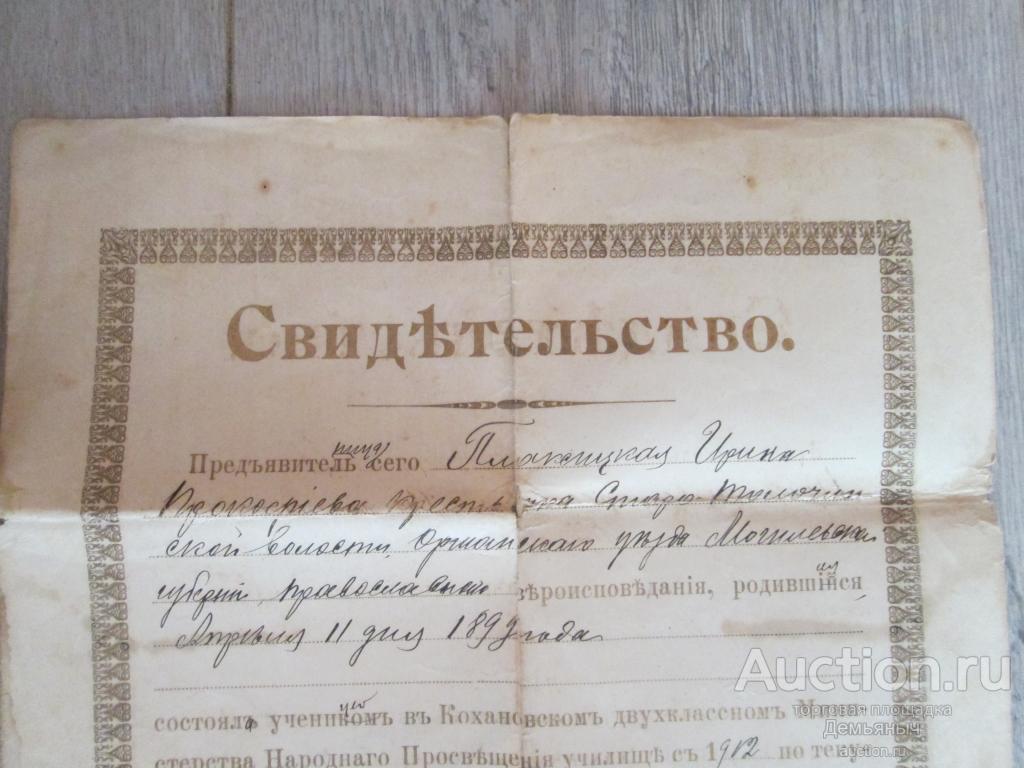 Свидѣтельство.
ница
Предъявитель сего Плаксицкая Ирина
Прокофіева крестьянка Старо-Толочин-
ской волости, Оршанскаго уѣзда Могилевской
губерніи, православнаго вѣроисповѣданія, родившійся
ая
Апрѣля 11 дня 1899 года
состояла ученикомъ въ Кохановскомъ двухклассномъ Мини-
цею
стерства Народнаго Просвѣщенія училищѣ съ 1912 по теку-
Auction.ru
торговая площадка
Демьяныч
auction.ru